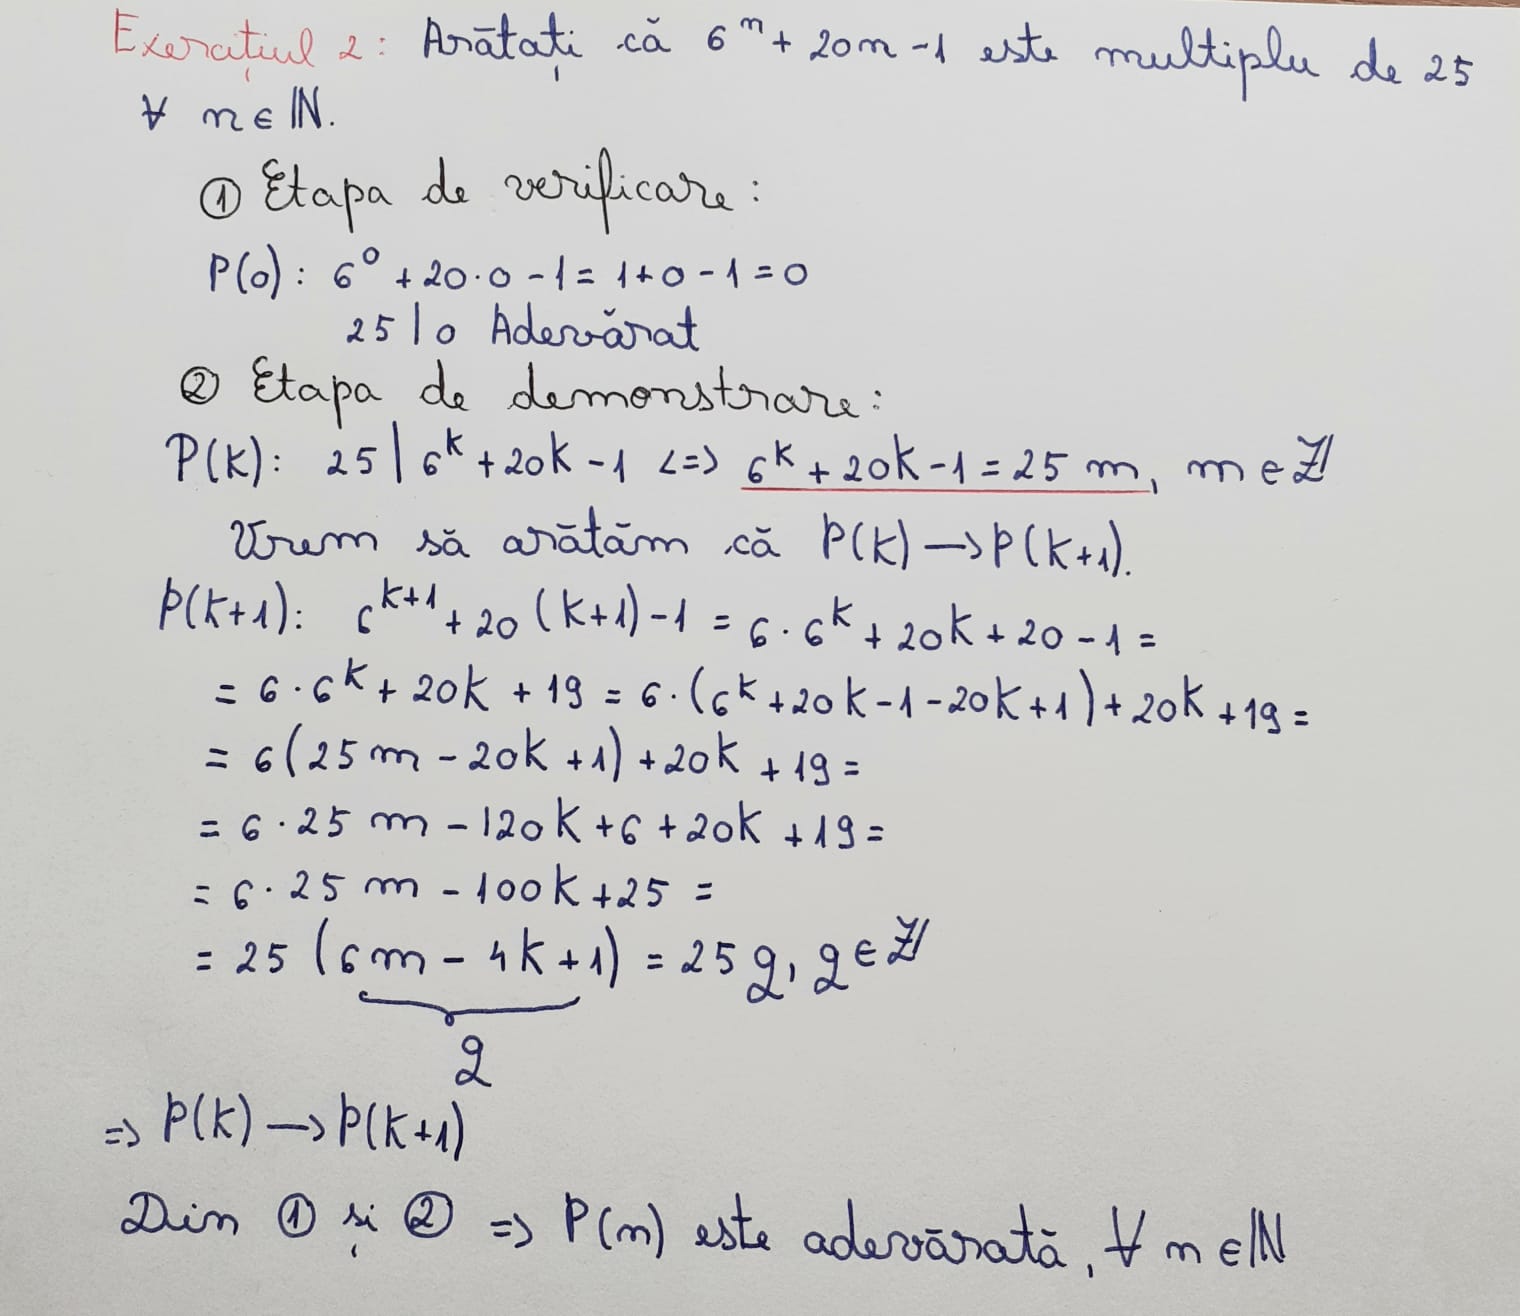 Exercițiul 2: Arătați că 6ⁿ + 20n - 1 este multiplu de 25
∀ n ∈ ℕ.
① Etapa de verificare:
P(0): 6⁰ + 20·0 - 1 = 1 + 0 - 1 = 0
25 | 0 Adevărat
② Etapa de demonstrare:
P(k): 25 | 6ᵏ + 20k - 1 <=> 6ᵏ + 20k - 1 = 25 m, m ∈ ℤ
Vrem să arătăm că P(k) → P(k+1).
P(k+1): 6ᵏ⁺¹ + 20(k+1) - 1 = 6·6ᵏ + 20k + 20 - 1 =
= 6·6ᵏ + 20k + 19 = 6·(6ᵏ + 20k - 1 - 20k + 1) + 20k + 19 =
= 6(25 m - 20k + 1) + 20k + 19 =
= 6·25 m - 120k + 6 + 20k + 19 =
= 6·25 m - 100k + 25 =
= 25 (6m - 4k + 1) = 25 q, q ∈ ℤ
q
=> P(k) → P(k+1)
Din ① și ② => P(n) este adevărată, ∀ n ∈ ℕ